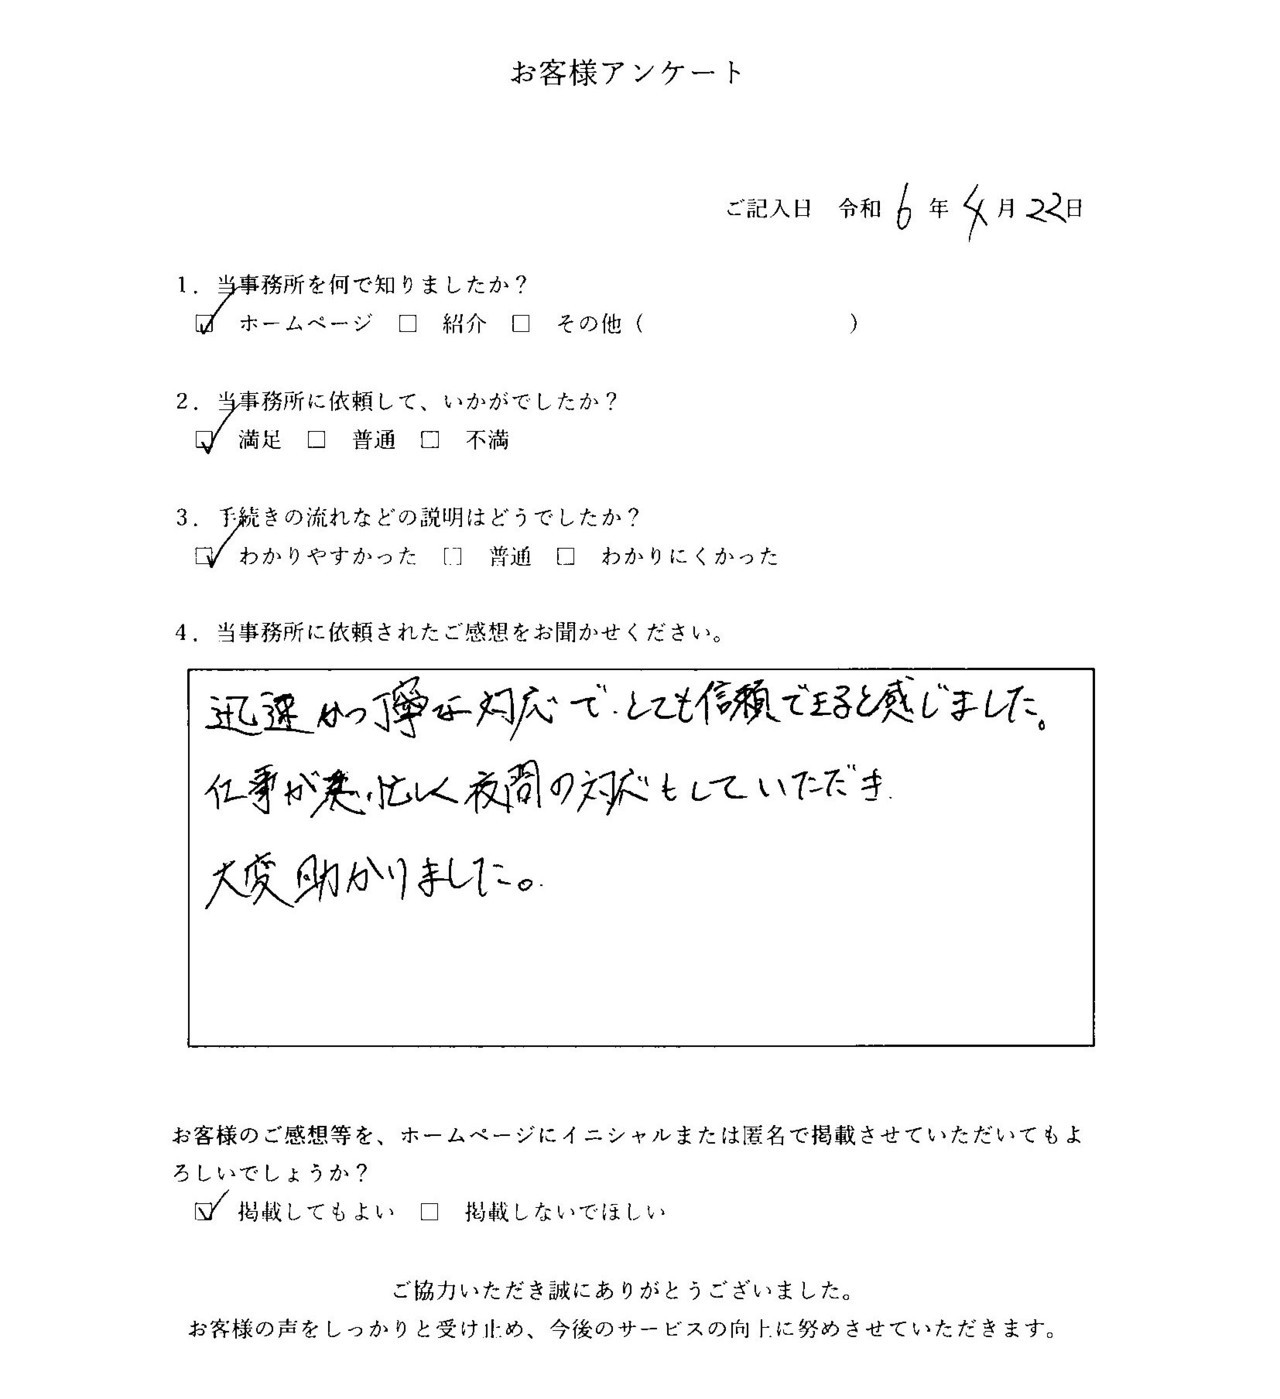 お客様アンケート
ご記入日 令和 6 年 4 月 22日
1. 当事務所を何で知りましたか?
☑ ホームページ □ 紹介 □ その他( )
2. 当事務所に依頼して、いかがでしたか?
☑ 満足 □ 普通 □ 不満
3. 手続きの流れなどの説明はどうでしたか?
☑ わかりやすかった □ 普通 □ わかりにくかった
4. 当事務所に依頼されたご感想をお聞かせください。
迅速かつ丁寧な対応で、とても信頼できると感じました。
仕事が忙しく夜間の対応もしていただき、
大変助かりました。
お客様のご感想等を、ホームページにイニシャルまたは匿名で掲載させていただいてもよ
ろしいでしょうか?
☑ 掲載してもよい □ 掲載しないでほしい
ご協力いただき誠にありがとうございました。
お客様の声をしっかりと受け止め、今後のサービスの向上に努めさせていただきます。